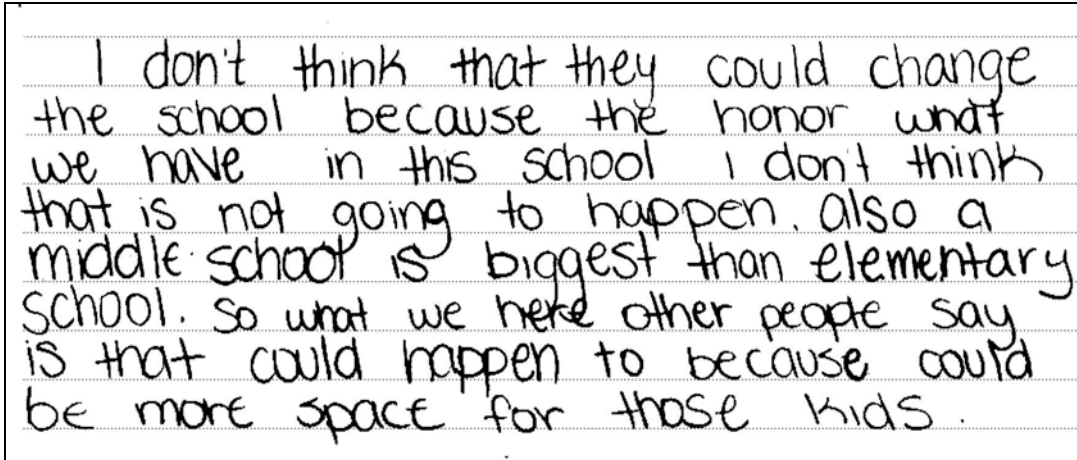 I don't think that they could change
the school because the honor what
we have in this school I don't think
that is not going to happen. also a
middle school is biggest than elementary
school. So what we here other people say
is that could happen to because could
be more space for those kids.